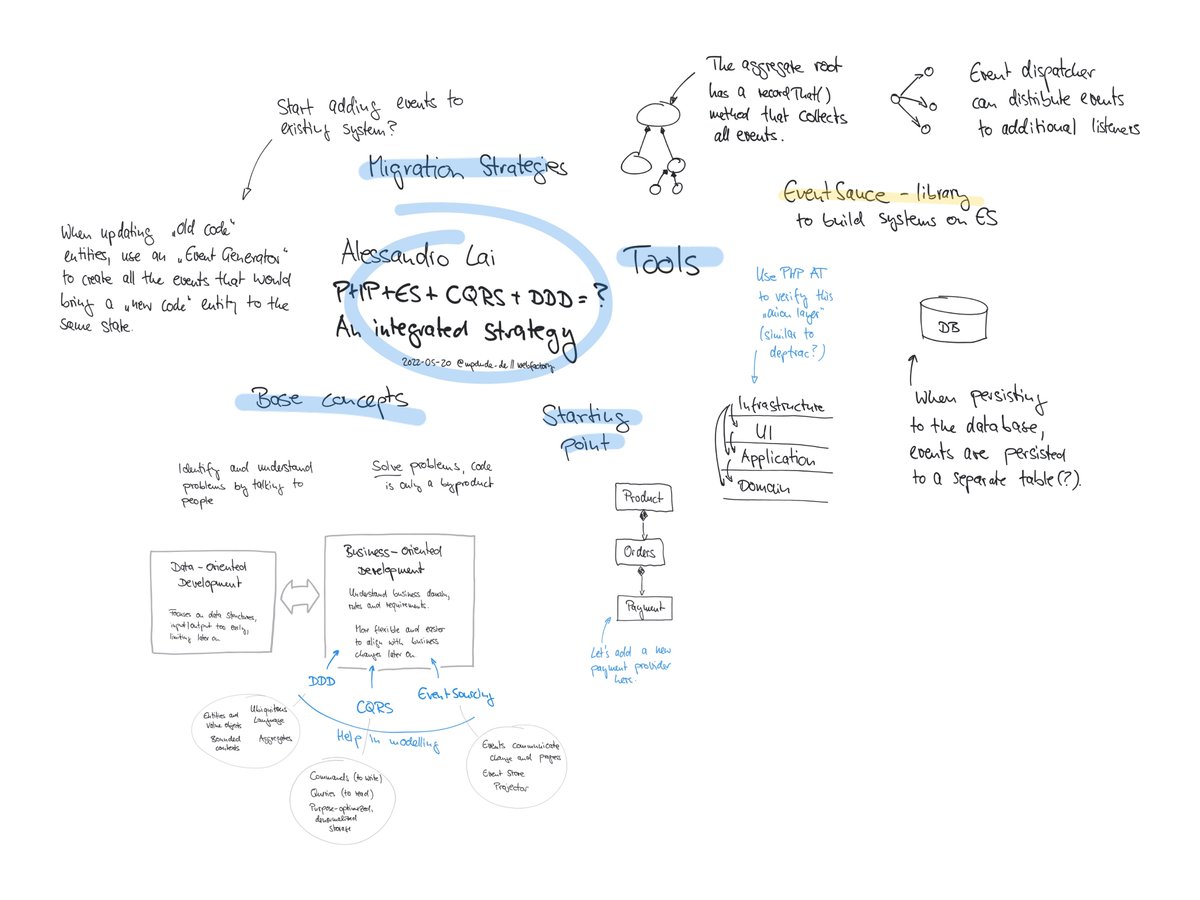 Start adding events to
existing system?
Migration Strategies
When updating „Old code“
entities, use an „Event Generator“
to create all the events that would
bring a „new code“ entity to the
same state.
Alessandro Lai
PHP+ES+CQRS+DDD=?
An integrated strategy
2022-05-20 @mpdude_de // webfactory
The aggregate root
has a recordThat()
method that collects
all events.
Event dispatcher
can distribute events
to additional listeners
EventSauce - library
to build systems on ES
Tools
Use PHP AT
to verify this
„onion layer“
(similar to
deptrac?)
Infrastructure
UI
Application
Domain
DB
When persisting
to the database,
events are persisted
to a separate table(?).
Base concepts
Identify and understand
problems by talking to
people
Solve problems, code
is only a byproduct
Data-Oriented
Development
Focuses on data structures,
input/output too early,
limiting later on
Business-Oriented
Development
Understand business domain,
rules and requirements.
More flexible and easier
to align with business
changes later on
DDD
CQRS
Event Sourcing
Help in modelling
Entities and
Value objects
Ubiquitous
Language
Bounded
contexts
Aggregates
Commands (to write)
Queries (to read)
Purpose-optimized,
denormalized
storage
Events communicate
change and progress
Event Store
Projector
Starting
point
Product
Orders
Payment
Let's add a new
payment provider
here.